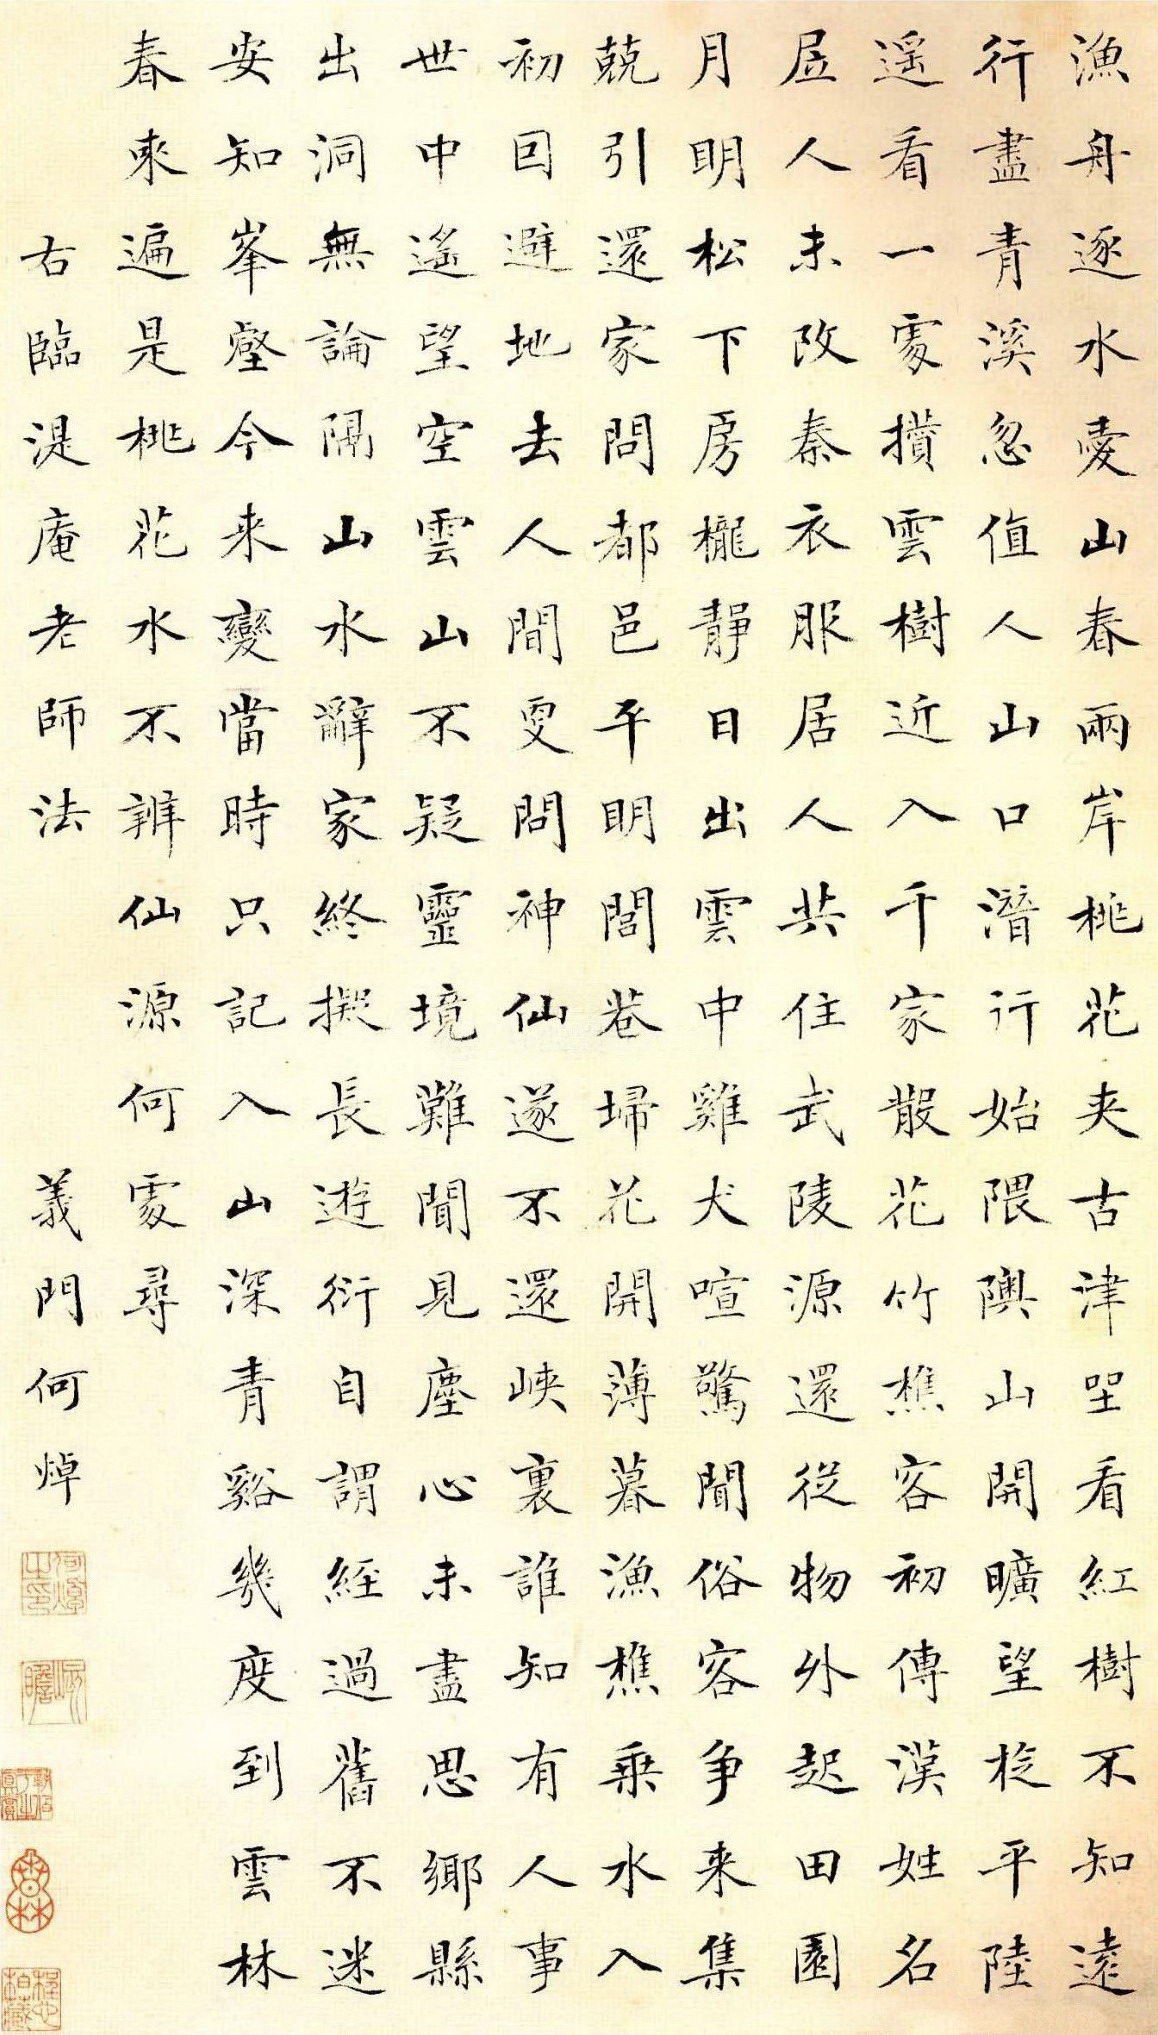 漁舟逐水愛山春兩岸桃花夾古津坐看紅樹不知遠
行盡青溪忽值人山口潛行始隈隩山開曠望旋平陸
遥看一處攢雲樹近入千家散花竹樵客初傳漢姓名
居人未改秦衣服居人共住武陵源還從物外起田園
月明松下房櫳靜日出雲中雞犬喧驚聞俗客争来集
兢引還家問都邑平明閭巷埽花開薄暮漁樵乘水入
初因避地去人間更問神仙遂不還峽裏誰知有人事
世中遙望空雲山不疑靈境難聞見塵心未盡思鄉縣
出洞無論隔山水辭家終擬長遊衍自謂經過舊不迷
安知峯壑今来變當時只記入山深青谿幾度到雲林
春來遍是桃花水不辨仙源何處尋
右臨湜庵老師法 義門何焯
何焯之印
屺瞻